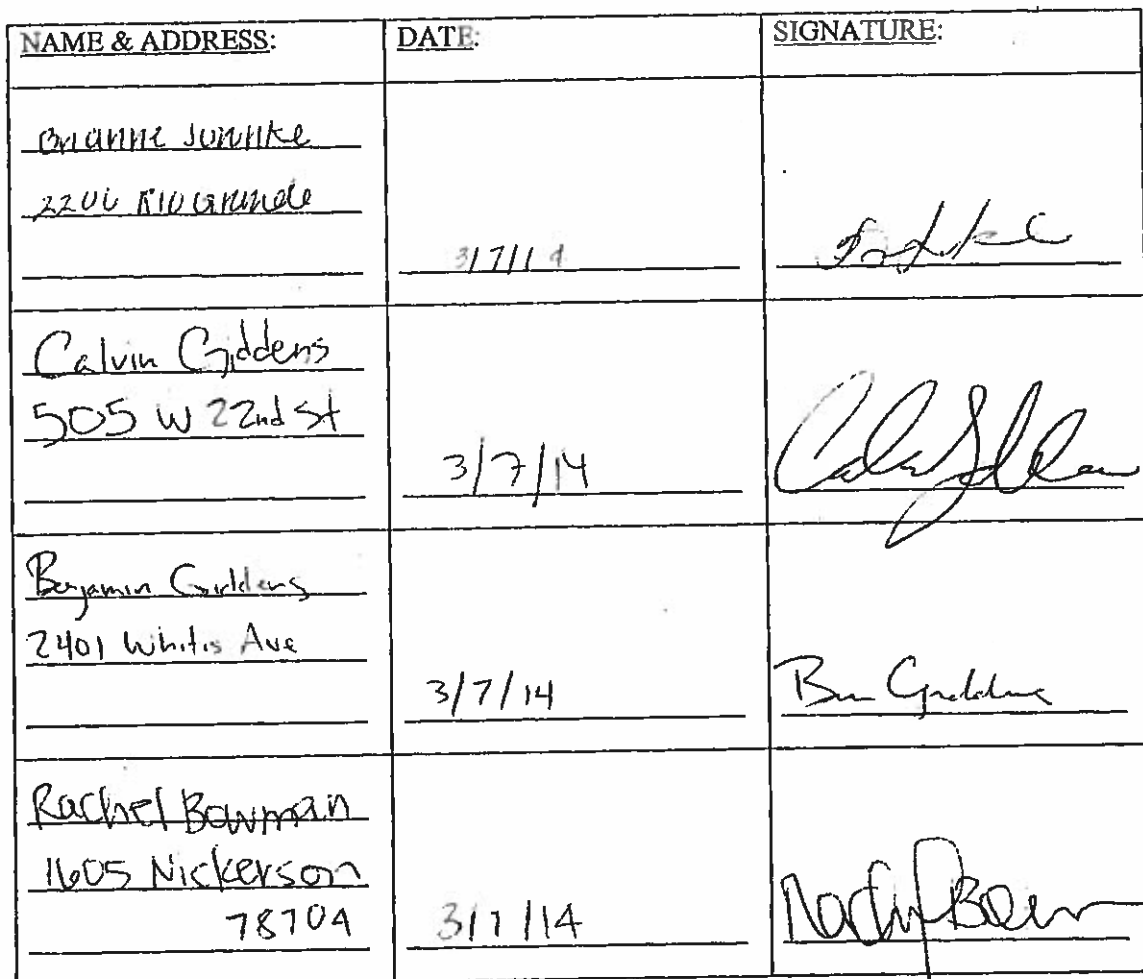 NAME & ADDRESS: DATE: SIGNATURE:
Brianne
Rio Grande
3/7/14
Calvin Giddens
505 W 22nd St
3/7/14
Benjamin Giddens
2401 Whitis Ave
3/7/14
Ben Giddens
Rachel Bowman
1605 Nickerson
78704
3/7/14